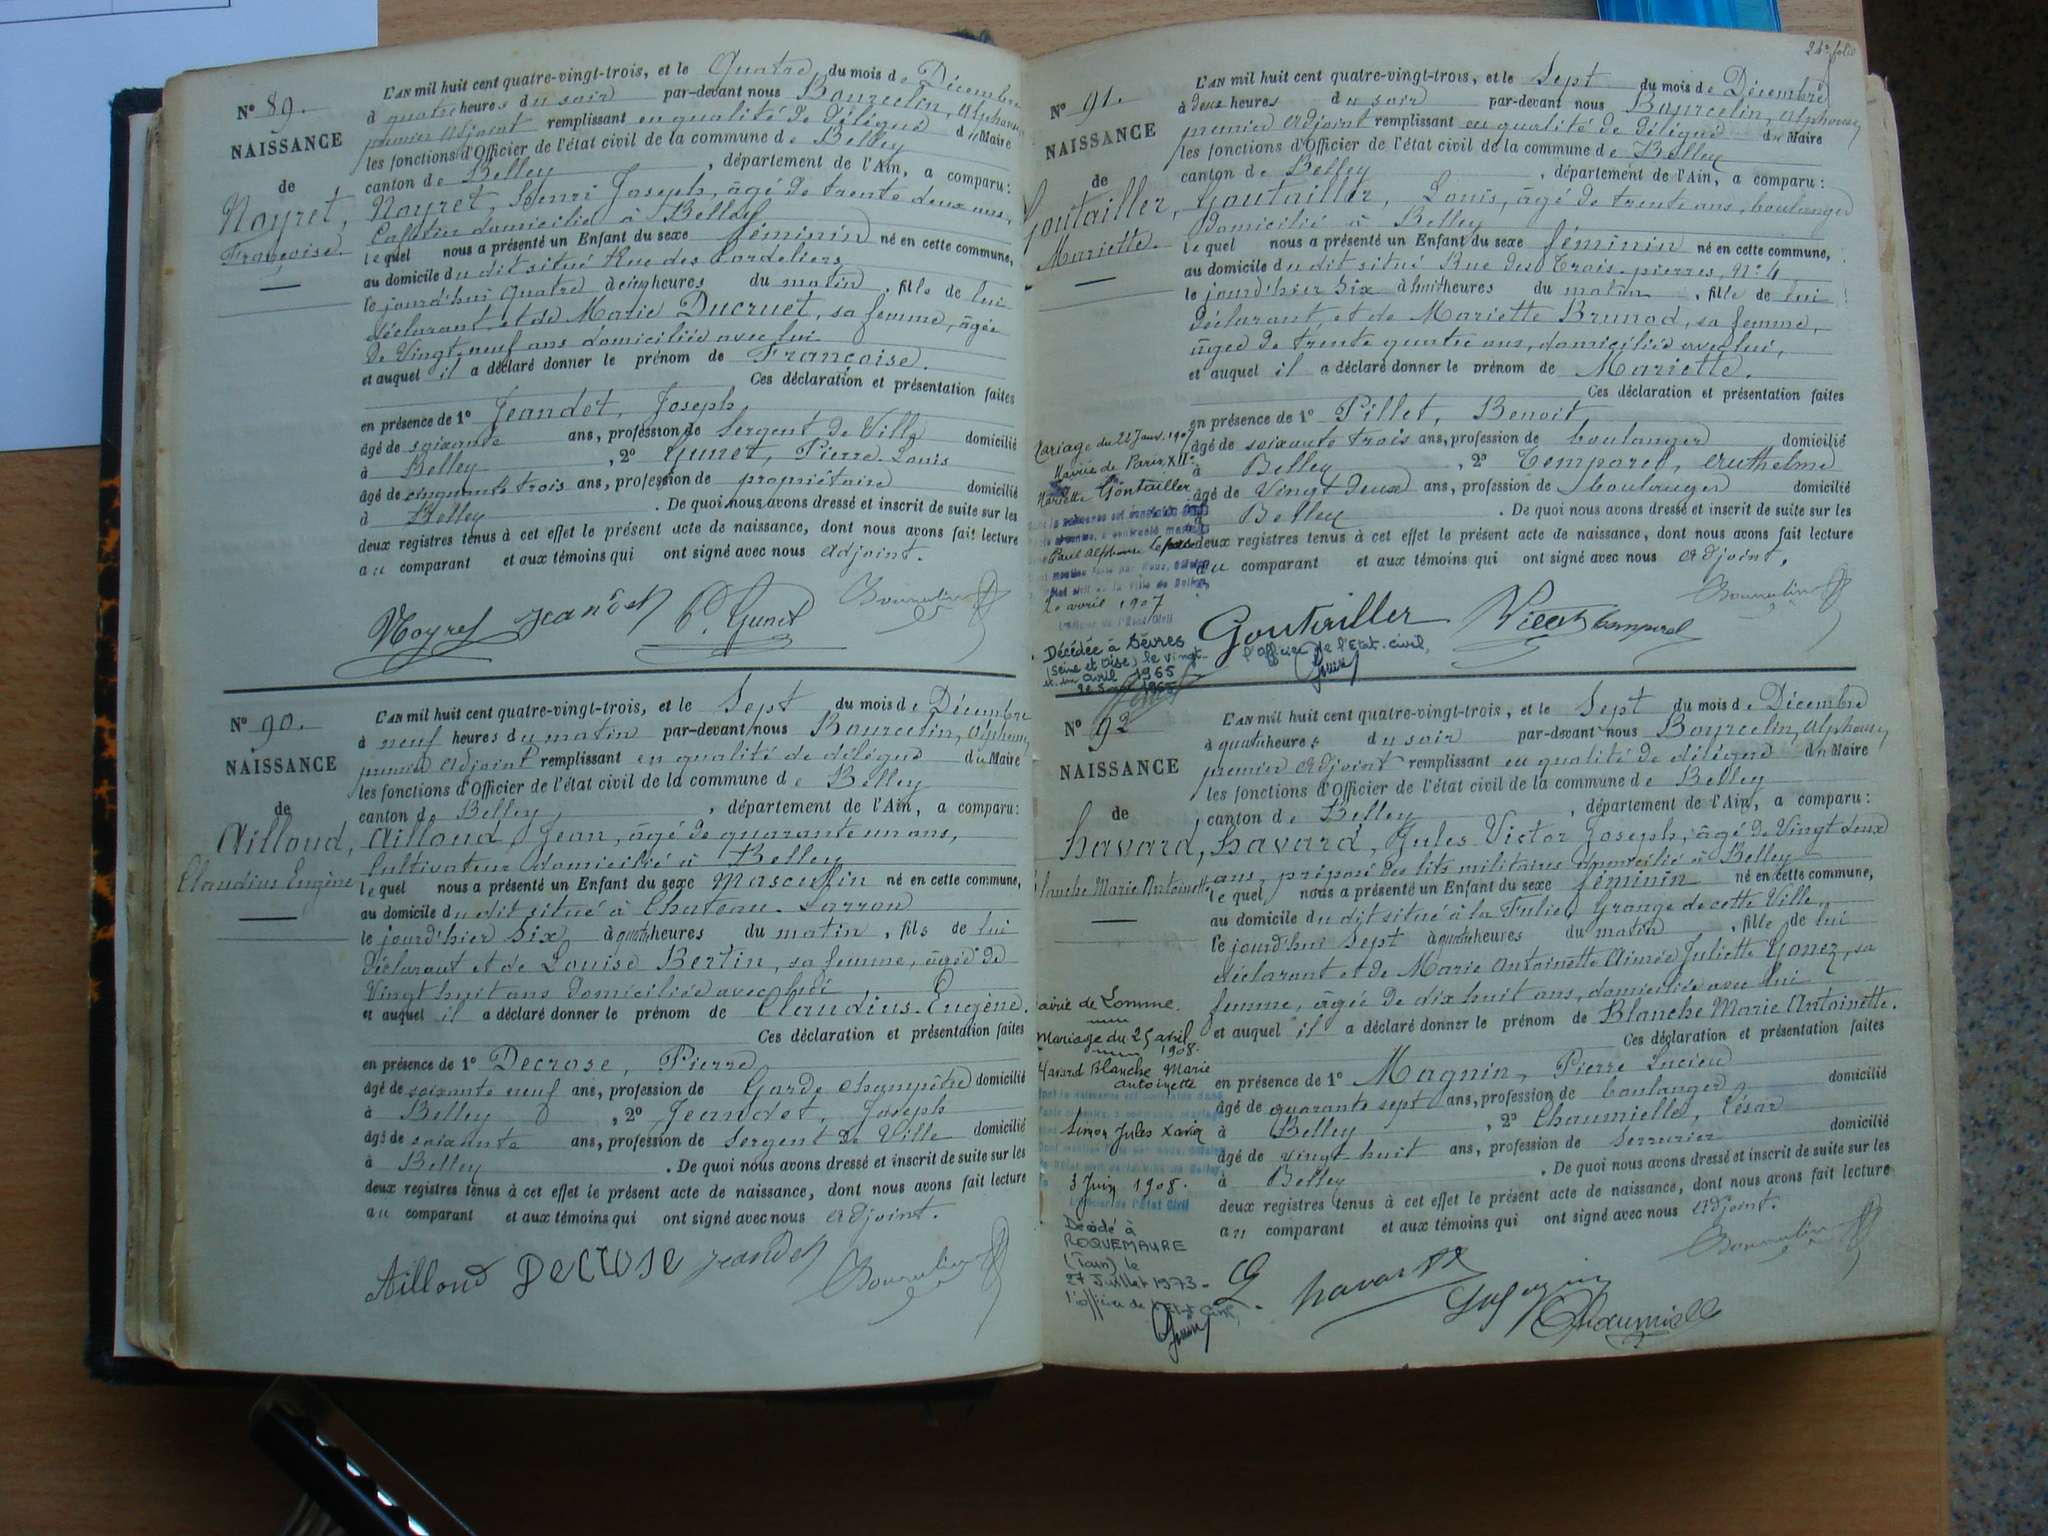 24e folio
N° 89.
NAISSANCE
de
Noyret,
Françoise.
L'AN mil huit cent quatre-vingt-trois, et le Quatre du mois de Décembre
à quatre heures du soir par-devant nous Bourcelin, Alphonse
premier Adjoint remplissant en qualité de délégué du Maire
les fonctions d'Officier de l'état civil de la commune de Belley
canton de Belley, département de l'Ain, a comparu:
Noyret, Henri Joseph, âgé de trente deux ans,
domicilié à Belley
lequel nous a présenté un Enfant du sexe féminin né en cette commune,
au domicile du dit situé Rue des Cordeliers
le jourd'hui quatre à cinq heures du matin, fille de lui
déclarant et de Marie Ducruet, sa femme, âgée
de Vingt neuf ans domiciliée avec lui
et auquel il a déclaré donner le prénom de Françoise.
Ces déclaration et présentation faites
en présence de 1° Jeandet, Joseph
âgé de soixante ans, profession de Sergent de Ville domicilié
à Belley, 2° Gunet, Pierre Louis
âgé de cinquante trois ans, profession de propriétaire domicilié
à Belley. De quoi nous avons dressé et inscrit de suite sur les
deux registres tenus à cet effet le présent acte de naissance, dont nous avons fait lecture
au comparant et aux témoins qui ont signé avec nous adjoint.
Noyret Jeandet P. Gunet Bourcelin
N° 90.
NAISSANCE
de
Ailloud,
Claudius Eugène
L'AN mil huit cent quatre-vingt-trois, et le Sept du mois de Décembre
à neuf heures du matin par-devant nous Bourcelin, Alphonse
premier Adjoint remplissant en qualité de délégué du Maire
les fonctions d'Officier de l'état civil de la commune de Belley
canton de Belley, département de l'Ain, a comparu:
Ailloud, Jean, âgé de quarante un ans,
Cultivateur domicilié à Belley
lequel nous a présenté un Enfant du sexe Masculin né en cette commune,
au domicile du dit situé à Chateau-Larron
le jourd'hier Six à quatre heures du matin, fils de lui
déclarant et de Louise Bertin, sa femme, âgée de
Vingt huit ans domiciliée avec lui
et auquel il a déclaré donner le prénom de Claudius-Eugène.
Ces déclaration et présentation faites
en présence de 1° Decrose, Pierre
âgé de soixante neuf ans, profession de Garde champêtre domicilié
à Belley, 2° Jeandet, Joseph
âgé de soixante ans, profession de Sergent de Ville domicilié
à Belley. De quoi nous avons dressé et inscrit de suite sur les
deux registres tenus à cet effet le présent acte de naissance, dont nous avons fait lecture
au comparant et aux témoins qui ont signé avec nous adjoint.
Ailloud Decrose Jeandet Bourcelin
N° 91.
NAISSANCE
de
Goutailler,
Mariette.
L'AN mil huit cent quatre-vingt-trois, et le Sept du mois de Décembre
à deux heures du soir par-devant nous Bourcelin, Alphonse
premier Adjoint remplissant en qualité de délégué du Maire
les fonctions d'Officier de l'état civil de la commune de Belley
canton de Belley, département de l'Ain, a comparu:
Goutailler, Louis, âgé de trente ans, boulanger
Domicilié à Belley
lequel nous a présenté un Enfant du sexe féminin né en cette commune,
au domicile du dit situé Rue des Trois-pierres, N° 4
le jourd'hier Six à huit heures du matin, fille de lui
déclarant, et de Mariette Brunod, sa femme,
âgée de trente quatre ans, domiciliée avec lui,
et auquel il a déclaré donner le prénom de Mariette.
Ces déclaration et présentation faites
en présence de 1° Pillet, Benoit
âgé de soixante trois ans, profession de boulanger domicilié
à Belley, 2° Temporel, Anthelme
âgé de Vingt deux ans, profession de boulanger domicilié
à Belley. De quoi nous avons dressé et inscrit de suite sur les
deux registres tenus à cet effet le présent acte de naissance, dont nous avons fait lecture
au comparant et aux témoins qui ont signé avec nous adjoint.
Goutailler Temporel Bourcelin
Mariage du 22 Janv. 1907
Mairie de Paris, XIIe
Mariette Goutailler
Paul Alphonse
20 avril 1907
L'Officier de l'État Civil
Décédée à Sèvres
(Seine et Oise) le vingt-
et-un avril 1965
l'Officier de l'Etat-civil,
N° 92
NAISSANCE
de
Havard,
Blanche Marie Antoinette
L'AN mil huit cent quatre-vingt-trois, et le Sept du mois de Décembre
à quatre heures du soir par-devant nous Bourcelin, Alphonse
premier Adjoint remplissant en qualité de délégué du Maire
les fonctions d'Officier de l'état civil de la commune de Belley
canton de Belley, département de l'Ain, a comparu:
Havard, Jules Victor Joseph, âgé de Vingt deux
ans, préposé des lits militaires domicilié à Belley
lequel nous a présenté un Enfant du sexe féminin né en cette commune,
au domicile du dit situé à la Grange de cette Ville
le jourd'hui Sept à quatre heures du matin, fille de lui
déclarant et de Marie Antoinette Aimée Juliette Gonez, sa
femme, âgée de dix huit ans, domiciliée avec lui
et auquel il a déclaré donner le prénom de Blanche Marie Antoinette.
Ces déclaration et présentation faites
en présence de 1° Magnin, Pierre Lucien
âgé de quarante sept ans, profession de boulanger domicilié
à Belley, 2° Chaumielle, César
âgé de vingt huit ans, profession de serrurier domicilié
à Belley. De quoi nous avons dressé et inscrit de suite sur les
deux registres tenus à cet effet le présent acte de naissance, dont nous avons fait lecture
au comparant et aux témoins qui ont signé avec nous adjoint.
Havard Chaumielle Bourcelin
Mairie de Lomme.
Mariage du 25 avril
1908.
Havard Blanche Marie
Antoinette
Simon Jules Xavier
3 Juin 1908.
L'Officier de l'État Civil
Décédé à
ROQUEMAURE
(Tarn) le
27 Juillet 1973-
l'officier de l'Etat Civil